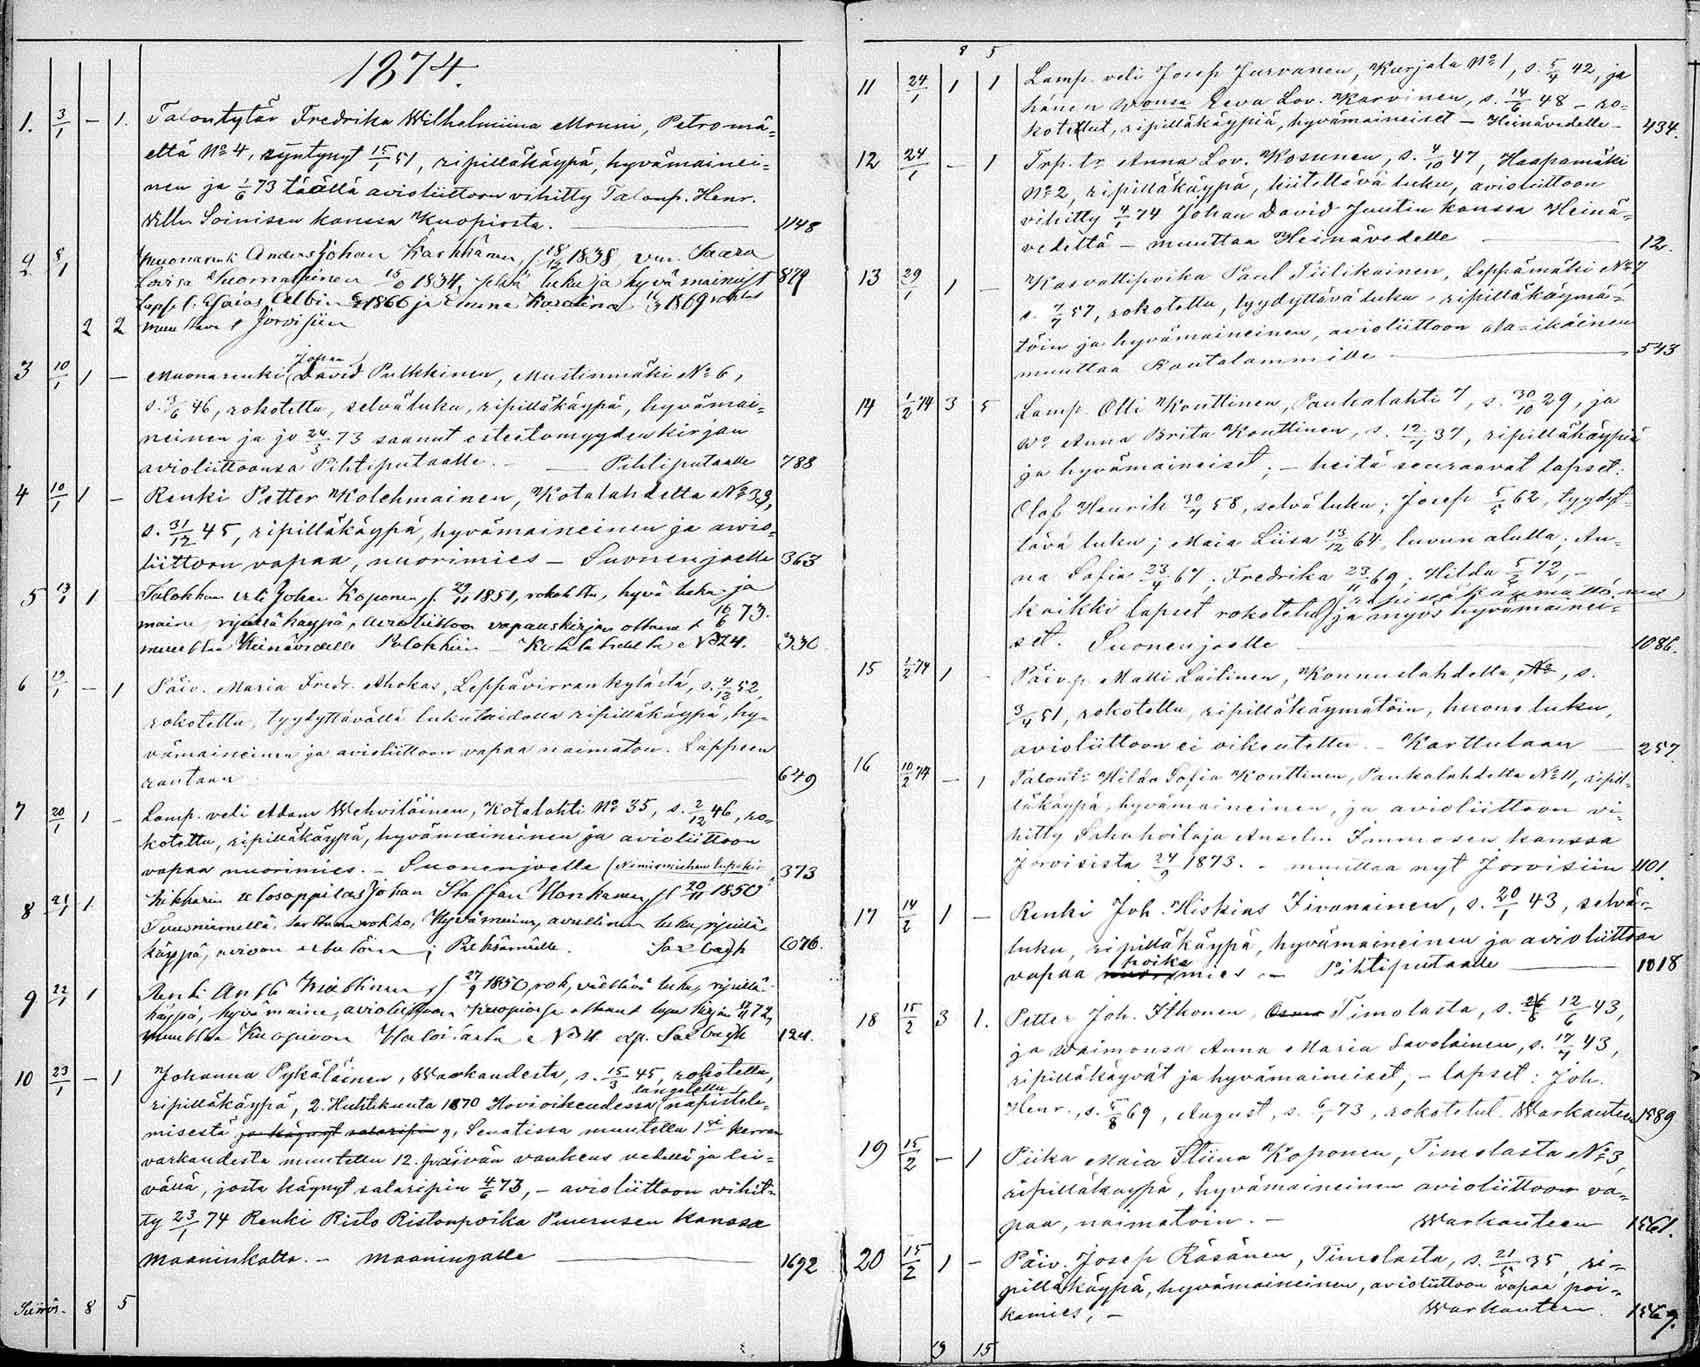 1874.
1. 3/1 — 1. Talontytär Fredrika Wilhelmiina Monni, Petromä-
eltä No 4, syntynyt 15/1 51, ripilläkäypä, hyvämainei-
nen ja 1/6 73 täällä avioliittoon vihitty Talonp. Henr.
Wilh. Soinisen kanssa Kuopiosta. — 1148
2 8/1 Muonarenk Anders Johan Karhhånen, f 18/12 1838, vm. Saara
Lovisa Suomalainen 15/0 1834, luku ja hyvä mainiset 879
laps. Esaias Albin 1866 ja Emma Karolina 1869
2 2 muuttava Jorvisiin
3 10/1 1 — Muonarenki Johan David Pulkkinen, Mustinmäki No 6,
s. 3/6 46, rokotettu, selväluku, ripilläkäypä, hyvämai-
neinen ja jo 24/3 73 saanut esteetomyyden kirjan
avioliittoonsa Pihtiputaalle. — Pihtiputaalle 788
4 10/1 1 — Renki Petter Kolehmainen, Kotalahdelta No 33,
s. 31/12 45, ripilläkäypä, hyvämaineinen ja avio-
liittoon vapaa, nuorimies — Suonenjoelle 363
5 13/1 1 Talokkaan veli Johan Koponen, f 29/11 1851, rokotettu, hyvä luku ja
maine, ripillä käypä, avioliittoon vapauskirjan ottanut 16/6 73.
muuttaa Heinävedelle — Kotalahdelta No 24. 330
6 19/1 — 1 Päiv. Maria Fredr. Ahokas, Leppävirran kylästä, s. 4/12 52,
rokotettu, tyydyttävällä lukutaidolla ripilläkäypä, hy-
vämaineinen ja avioliittoon vapaa naimaton. Lappeen
rantaan — 649
7 20/1 1 — Lamp. veli Adam Wehviläinen, Kotalahti No 35, s. 2/12 46, ro-
kotettu, ripilläkäypä, hyvämaineinen ja avioliittoon
vapaa nuorimies. — Suonenjoelle (Nimismiehen 373
8 21/1 1 Johan Staffan Honkanen f 20/11 1850
rokko, Hyvämaine, luku, ripillä-
käypä, 676.
9 22/1 1 Renki f 27/9 1850, rok, luku, ripillä-
käypä, hyvä maine, avioliittoon Kuopiossa ottanut 4/11 72,
muuttaa Kuopioon No 4 1211.
10 23/1 — 1 Johanna Pykäläinen, Warkaudesta, s. 15/3 45, rokotettu,
ripilläkäypä, 2. Huhtikuuta 1870 Hovioikeudessa langetettu näpistele-
misestä ja käynyt salaripin g. Senatissa muutettu 1:n kerran
varkaudesta muutettu 12. päivän vankeus vedellä ja lei-
vällä, josta käynyt salaripin 4/6 73, — avioliittoon vihit-
ty 23/1 74 Renki Risto Ristonpoika Puurusen kanssa
Maaninkalta. — Maaningalle — 1692
Siirros. 8 5
8 5
11 24/1 1 1 Lamp. veli Josep Jurvanen, Kurjala No 1, s. 5/4 42, ja
hänen wonsa Eeva Lov. Karvinen, s. 14/6 48 — ro-
kotetut, ripilläkäypiä, hyvämaineiset — Heinävedelle — 434.
12 24/1 — 1 Trp. tr Anna Lov. Kosunen, s. 4/10 47, Haapamäki
No 2, ripilläkäypä, kiitettävä luku, avioliittoon
vihitty 4/1 74 Johan David Juutin kanssa Heinä-
vedeltä — muuttaa Heinävedelle — 12.
13 29/1 1 — Kasvattipoika Paul Tiilikainen, Leppämäki No 7,
s. 7/7 57, rokotettu, tyydyttävä luku, ripilläkäymä-
töin ja hyvämaineinen, avioliittoon ala-ikäinen
muuttaa Rautalammille — 543
14 1/2 74 3 5 Lamp. Olli Konttinen, Paukalahti 7, s. 30/10 29, ja
Wo Anna Brita Konttinen, s. 12/1 37, ripilläkäypiä
ja hyvämaineiset; — heitä seuraavat lapset:
Olof Henrik 30/4 58, selvä luku; Josep 5/5 62, tyydyt-
tävä luku; Maia Liisa 13/12 64, luvun alulla; An-
na Sofia 23/4 67; Fredrika 23/11 69; Hilda 5/2 72, —
kaikki lapset rokotetut (ripillä käymättömät) ja myös hyvämainei-
set. Suonenjoelle — 1086.
15 1/2 74 1 — Päivp. Matti Laitinen, Konnuslahdelta, No, s.
3/4 51, rokotettu, ripilläkäymätöin, huono luku,
avioliittoon ei oikeutettu. — Karttulaan — 257.
16 10/2 74 — 1 Talontr Hilda Sofia Konttinen, Paukalahdelta No 11, ripil-
läkäypä, hyvämaineinen, ja avioliittoon vi-
hitty Sahahoitaja Anselm Immosen kanssa
Jorvisista 24/9 1873. — muuttaa nyt Jorvisiin 1101.
17 14/2 1 — Renki Joh. Hiskias Iivanainen, s. 20/1 43, selvä-
luku, ripilläkäypä, hyvämaineinen ja avioliittoon
vapaa poika mies — Pihtiputaalle — 1018
18 15/2 3 1. Petter Joh. Ihonen, Timolasta, s. 12/6 43,
ja waimonsa Anna Maria Savolainen, s. 17/7 43,
ripilläkäyvät ja hyvämaineiset, — lapset: Joh.
Henr., s. 5/8 69, August, s. 6/1 73, rokotetut. Warkauteen 1589
19 15/2 — 1 Piika Maia Stiina Koponen, Timolasta No 3,
ripilläkäypä, hyvämaineinen avioliittoon va-
paa, naimatoin. — Warkauteen 1561.
20 15/2 1 — Päiv. Josep Räsänen, Timolasta, s. 21/5 35, ri-
pilläkäypä, hyvämaineinen, avioliittoon vapaa poi-
kamies, — Warkauteen. 1567.
19 15